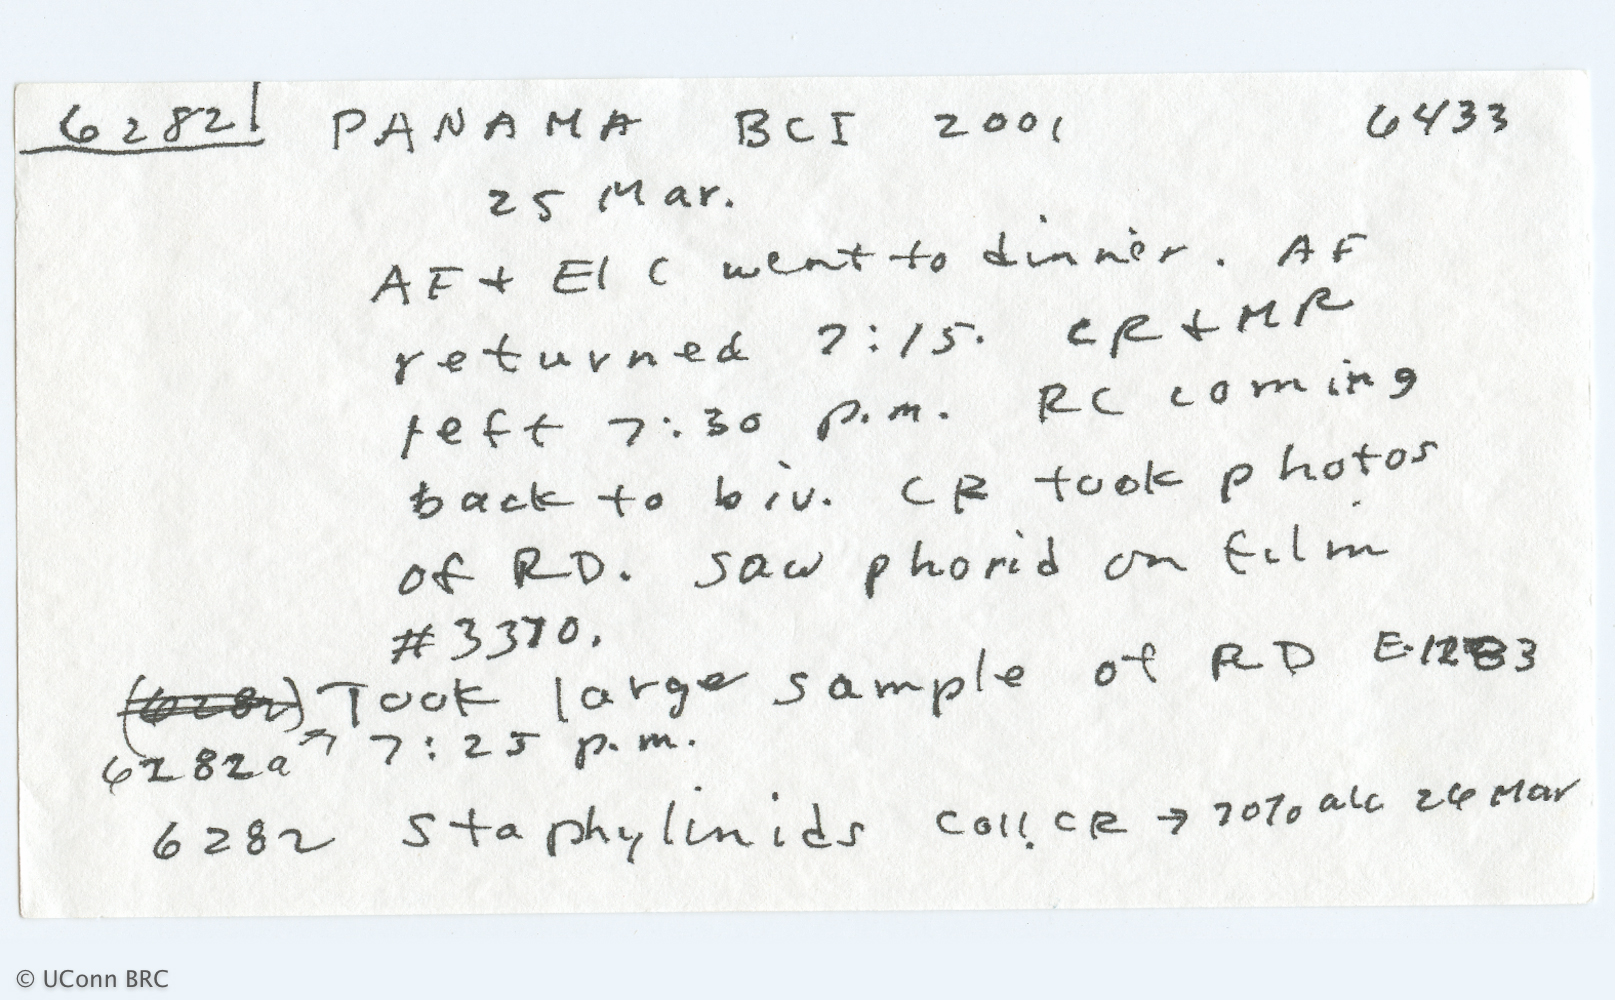 6282 PANAMA BCI 2001 6433
25 Mar.
AF + EIC went to dinner. AF
returned 7:15. CR + MR
left 7:30 p.m. RC coming
back to biv. CR took photos
of RD. Saw phorid on film
#3370.
(6282) Took large sample of RD
6282a → 7:25 p.m.
6282 Staphylinids Coll. CR → 70% alc 26 Mar
© UConn BRC